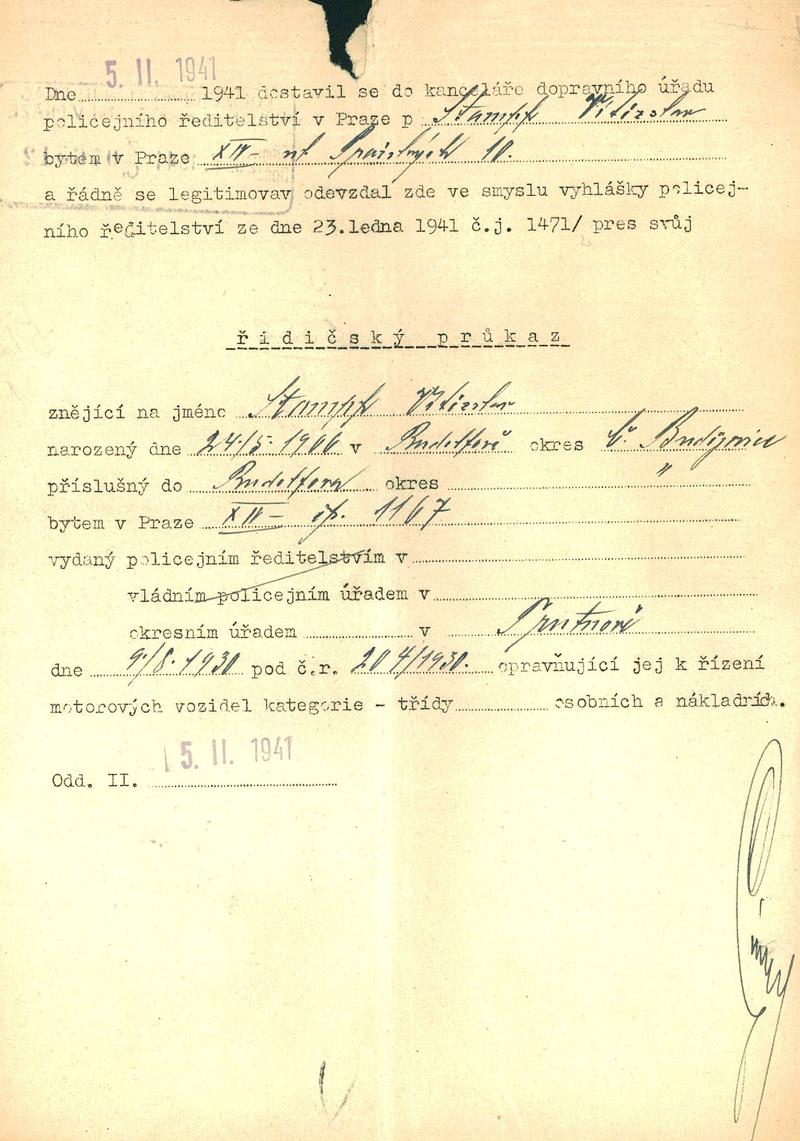 5. II. 1941
Dne 1941 dostavil se do kanceláře dopravního úřadu
policejního ředitelství v Praze p Stampf Vítězslav
bytem v Praze XIV- ul 10.
a řádně se legitimovav odevzdal zde ve smyslu vyhlášky policej-
ního ředitelství ze dne 23.ledna 1941 č.j. 1471/ pres svůj
řidičský průkaz
znějící na jméno Stampf Vítězslav
narozený dne 24/5. 1906 v Rudolfově okres Č. Budějovice
příslušný do Rudolfova okres "
bytem v Praze XIV- čp. 1167
vydaný policejním ředitelstvím v
vládním policejním úřadem v
okresním úřadem v Trutnově
dne 9./8. 1930 pod č.r. 204/1930. opravňující jej k řízení
motorových vozidel kategorie - třídy osobních a nákladních.
5. II. 1941
Odd. II.